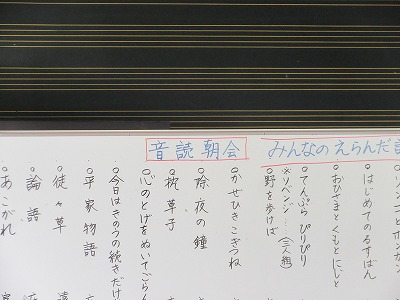 音読朝会
みんなのえらんだ
○はじめてのるすばん
○おひさまとくもとにじと
○てんぷら ぴりぴり
※リベンジ…(三人組)
○野を歩けば
○かぜひきこぎつね
○除夜の鐘
○枕草子
○心のとげをぬいてごらん
○今日はきのうの続きだけ
○平家物語
○徒々草
○論語
○あこがれ